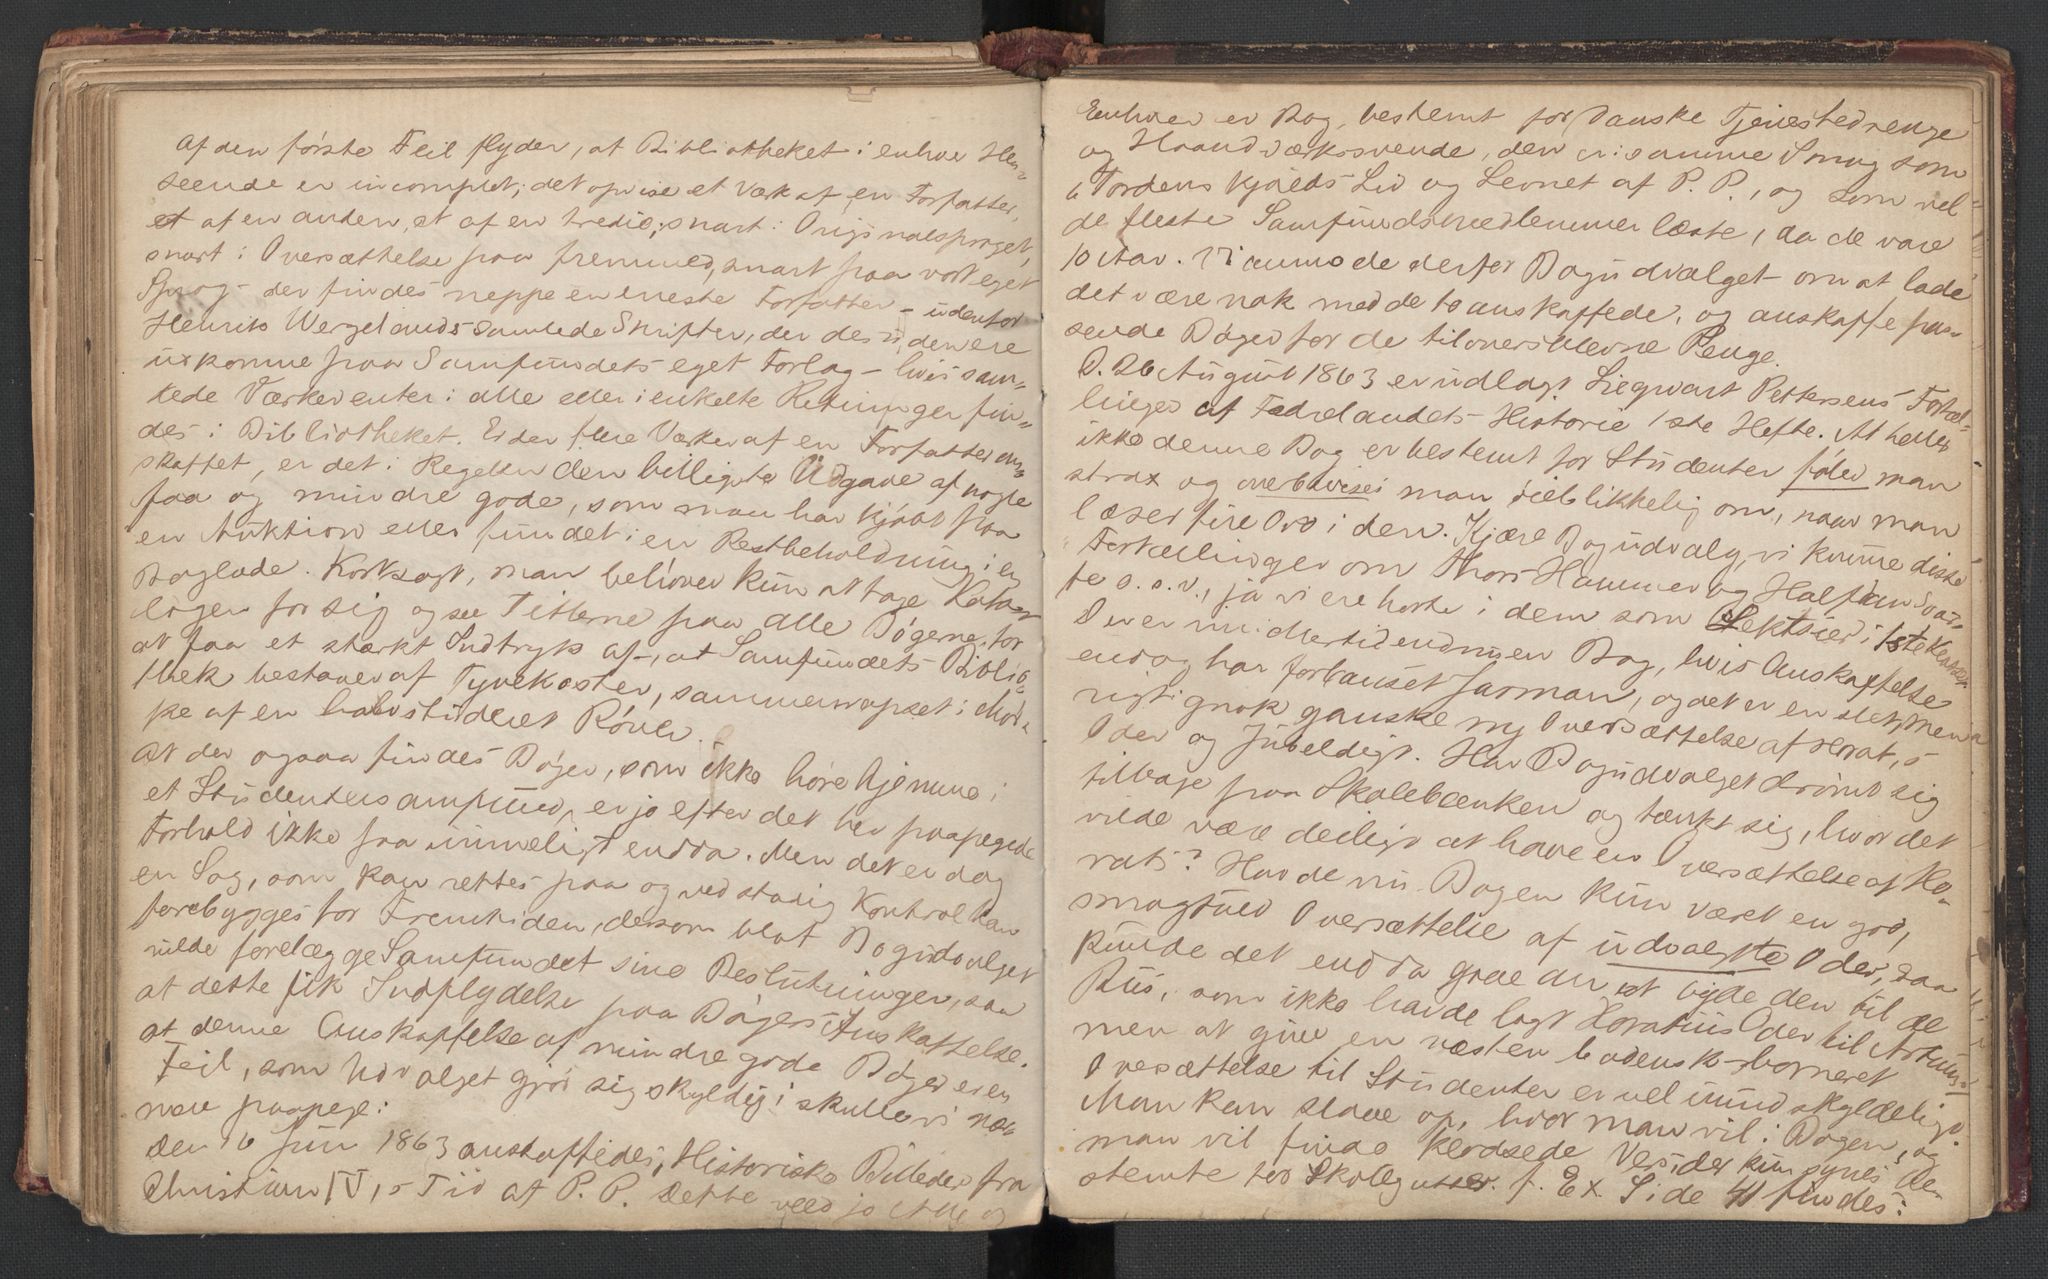 Af den første Feil flyder, at Bibliotheket i enhver Hen-
seende er incomplet; det opvise et Værk af en Forfatter,
et af en anden, et af en tredie; snart i Originalsproget,
snart i Oversættelse paa fremmed, snart paa vort eget
Sprog – der findes neppe en eneste Forfatter – udenfor
Henrik Wergelands samlede Skrifter, der desuden ere
udkomne paa Samfundets eget Forlag – hvis sam-
lede Værker enten i alle eller i enkelte Retninger fin-
des i Bibliotheket. Er der flere Værker af en Forfatter an-
skaffet, er det i Regelen den billigste Udgave af nogle
faa og mindre gode, som man har kjøbt paa
en Auktion eller fundet i en Restbeholdning i en
Boglade. Kortsagt, man behøver kun at tage Kata-
logen for sig og see Titlerne paa alle Bøgerne, for
at faa et stærkt Indtryk af, at Samfundets Biblio-
thek bestaaer af Tyvekoster, sammenrapset i Mør-
ke af en halvstuderet Røver.
At der ogsaa findes Bøger, som ikke høre hjemme i
et Studentersamfund, er jo efter det her paapegede
Forhold ikke saa urimeligt endda. Men det er dog
en Sag, som kan rettes paa og ved stadig Kontrol kan
forebygges for Fremtiden, dersom blot Bogudvalget
vilde forelægge Samfundet sine Beslutninger, saa
at dette fik Indflydelse paa Bøgers Anskaffelse.
at denne Anskaffelse af mindre gode Bøger er en
Feil, som Udvalget gjør sig skyldig i skulle vi nær-
mere paapege:
Den 16 Juni 1863 anskaffedes, Historiske Billeder fra
Christian IV,s Tid af P. P. Dette veed jo Alle og
Enhver er Bog, bestemt for danske Tjenestedrenge
og Haandværkssvende, der er i samme Smag som
Tordenskjolds Liv og Levnet af P. P., og som vel
de fleste Samfundsmedlemmer læste, da de vare
10 Aar. Vi anmode derfor Bogudvalget om at lade
det være nok med de to anskaffede, og anskaffe pas-
sende Bøger for de tiloversblevne Penge.
D. 26 August 1863 er udlagt Siegwart Petersens Fortæl-
linger af Fædrelandets Historie 1ste Hefte. At heller
ikke denne Bog er bestemt for Studenter føler man
strax og overbevises man øieblikkelig om, naar man
læser fire Ord i den. Kjære Bogudvalg, vi kunne disse
Fortællinger om Thors Hammer og Halfdan Svar-
te o. s. v., ja vi ere hørte i dem som Lektier i 1ste Klasse
Der er imidlertid endnu en Bog, hvis Anskaffelse
endog har forbauset Jarman, og det er en slet, men
rigtignok ganske ny Oversættelse af Horat,s
Oder og Juveldigt. Har Bogudvalget drømt sig
tilbage paa Skolebænken og tænkt sig, hvor det
vilde være deiligt at have en Oversættelse af Ho-
rats? Havde nu Bogen kun været en god,
smagfuld Oversættelse af udvalgte Oder, saa
kunde det endda graae an at byde den til de
Rus, som ikke havde lagt Horatius Oder til Artium;
men at give en næsten
Oversættelse til Studenter er vel uundskyldeligt.
Man kan slaae op, hvor man vil i Bogen, og
man vil finde Vers, der kun synes be-
stemte for Skolegutter. f. Ex. Side 41 findes: